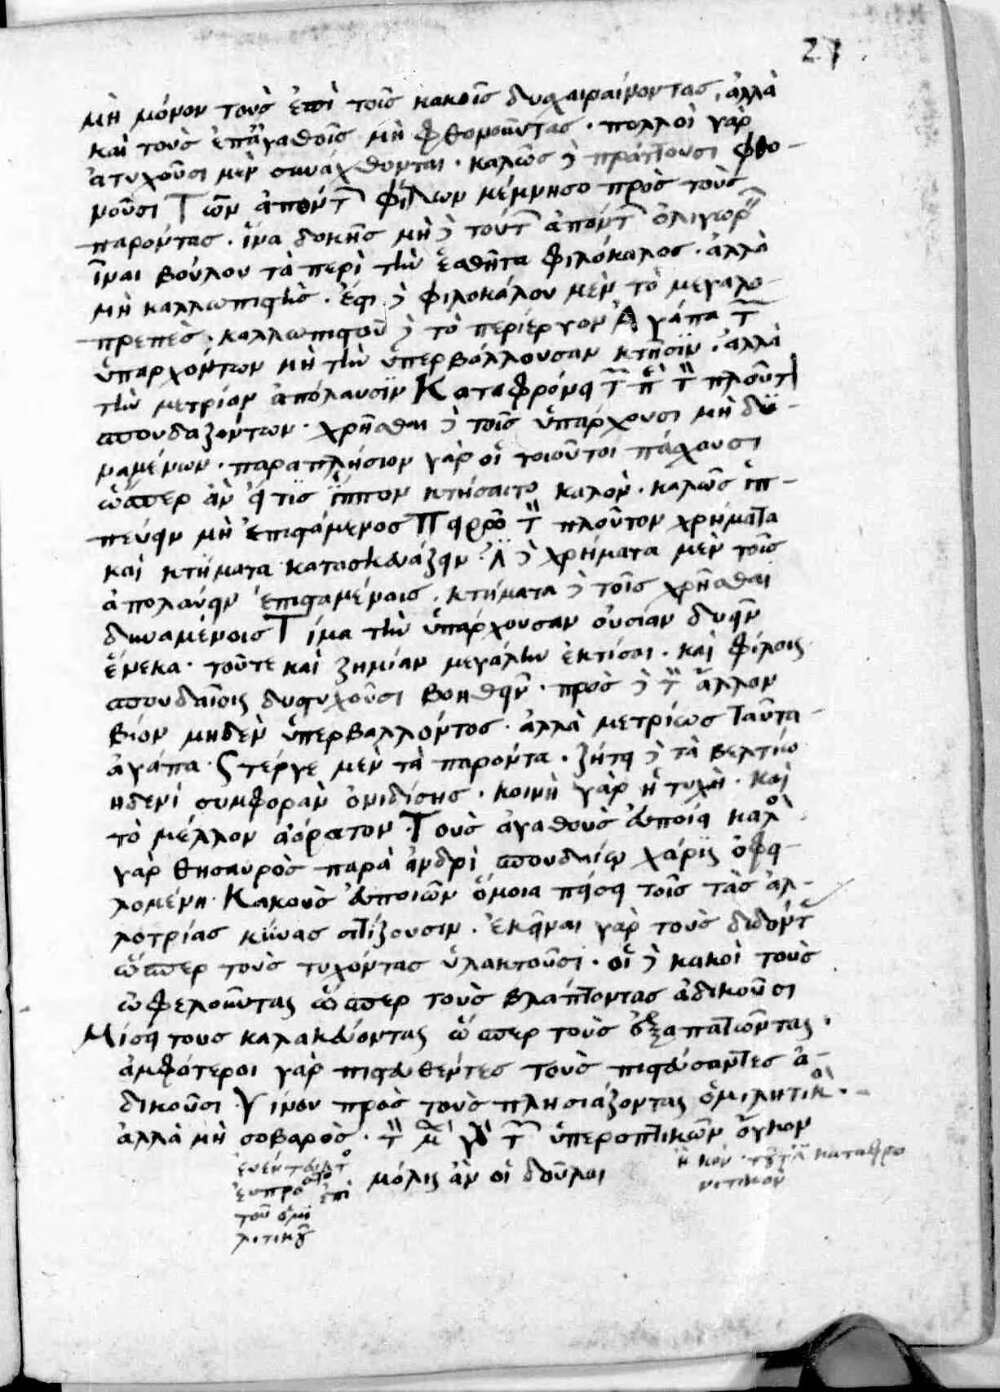 27
μὴ μόνον τοὺς ἐπὶ τοῖς κακοῖς δυσχεραίνοντας, ἀλλὰ
καὶ τοὺς ἐπ' ἀγαθοῖς μὴ φθονοῦντας · πολλοὶ γὰρ
ἀτυχοῦσι μὲν συνάχθονται · καλῶς δὲ πράττουσι φθο-
νοῦσι Τῶν ἀπόντων φίλων μέμνησο πρὸς τοὺς
παρόντας · ἵνα δοκῇς μὴ δὲ τούτων ἀπόντων ὀλιγωρεῖν
εἶναι βούλου τὰ περὶ τὴν ἐσθῆτα φιλόκαλος · ἀλλὰ
μὴ καλλωπιστής · ἔστι δὲ φιλοκάλου μὲν τὸ μεγαλο-
πρεπὲς · καλλωπιστοῦ δὲ τὸ περίεργον Ἀγάπα τῶν
ὑπαρχόντων μὴ τὴν ὑπερβάλλουσαν κτῆσιν · ἀλλὰ
τὴν μετρίαν ἀπόλαυσιν Καταφρόνει τῶν περὶ τὸν πλοῦτον
σπουδαζόντων · χρῆσθαι δὲ τοῖς ὑπάρχουσι μὴ δυ-
ναμένων · παραπλήσιον γὰρ οἱ τοιοῦτοι πάσχουσι
ὥσπερ ἂν εἴ τις ἵππον κτήσαιτο καλὸν · καλῶς ἱπ-
πεύειν μὴ ἐπιστάμενος Πειρῶ τὸν πλοῦτον χρήματα
καὶ κτήματα κατασκευάζειν · ἔστι δὲ χρήματα μὲν τοῖς
ἀπολαύειν ἐπισταμένοις · κτήματα δὲ τοῖς χρῆσθαι
δυναμένοις Τίμα τὴν ὑπάρχουσαν οὐσίαν δυεῖν
ἕνεκα · τοῦτε καὶ ζημίαν μεγάλην ἐκτίσαι · καὶ φίλοις
σπουδαίοις δυστυχοῦσι βοηθεῖν · πρὸς δὲ τὸν ἄλλον
βίον μηδὲν ὑπερβαλλόντος · ἀλλὰ μετρίως ταῦτα
ἀγάπα · Στέργε μὲν τὰ παρόντα · ζήτει δὲ τὰ βελτίω
ηδενὶ συμφορὰν ὀνιδίσης · κοινὴ γὰρ ἡ τυχὴ · καὶ
τὸ μέλλον ἀόρατον · Τοὺς ἀγαθοὺς εὐποίει καλὸς
γὰρ θησαυρὸς παρὰ ἀνδρὶ σπουδαίῳ χάρις ὀφει-
λομένη · Κακοὺς εὐποιῶν ὅμοια πείσει τοῖς τὰς ἀλ-
λοτρίας κύνας σιτίζουσιν · ἐκεῖναι γὰρ τοὺς διδόντας
ὥσπερ τοὺς τυχόντας ὑλακτοῦσι · οἵ δὲ κακοὶ τοὺς
ὠφελοῦντας ὥσπερ τοὺς βλάπτοντας ἀδικοῦσι
Μίσει τους κολακεύοντας ὥσπερ τοὺς ἐξαπατῶντας ·
ἀμφότεροι γὰρ πιστευθέντες τοὺς πιστεύσαντες ἀ-
δικοῦσι · Γίνου πρὸς τοὺς πλησιάζοντας ὁμιλητικὸς ·
ἀλλὰ μὴ σοβαρὸς · τὸν μὲν γὰρ τῶν ὑπεροπτικῶν ὄγκον
μόλις ἂν οἱ δοῦλοι
ἐπὶ
τοῦ ὁμι
λιτικοῦ
καταφρο
νιτικὸν